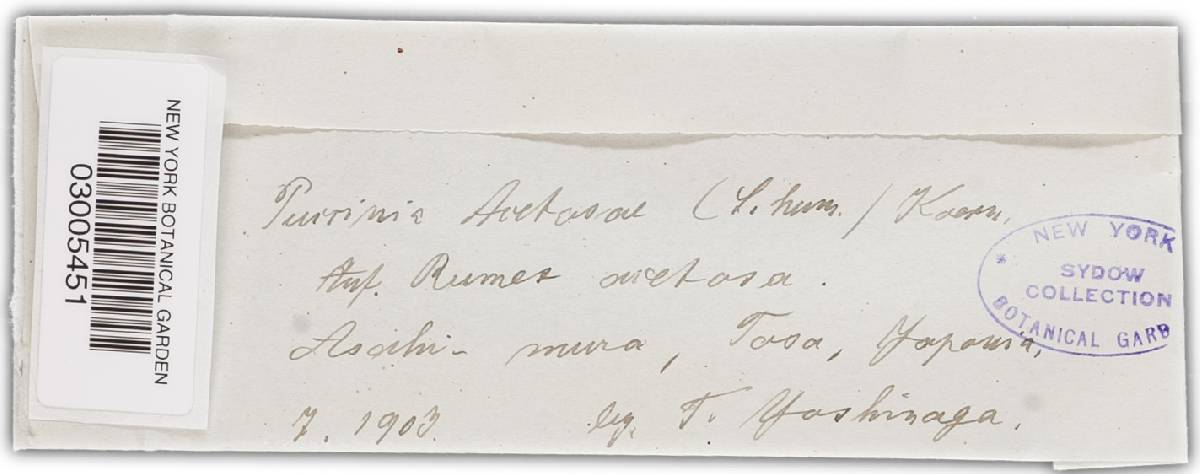 NEW YORK BOTANICAL GARDEN
03005451
Puccinia Acetosae (Schum.) Koern.
Auf. Rumex acetosa.
Asahi-mura, Tosa, Japonia,
7. 1903. leg. T. Yoshinaga.
* NEW YORK
SYDOW
COLLECTION
BOTANICAL GARD